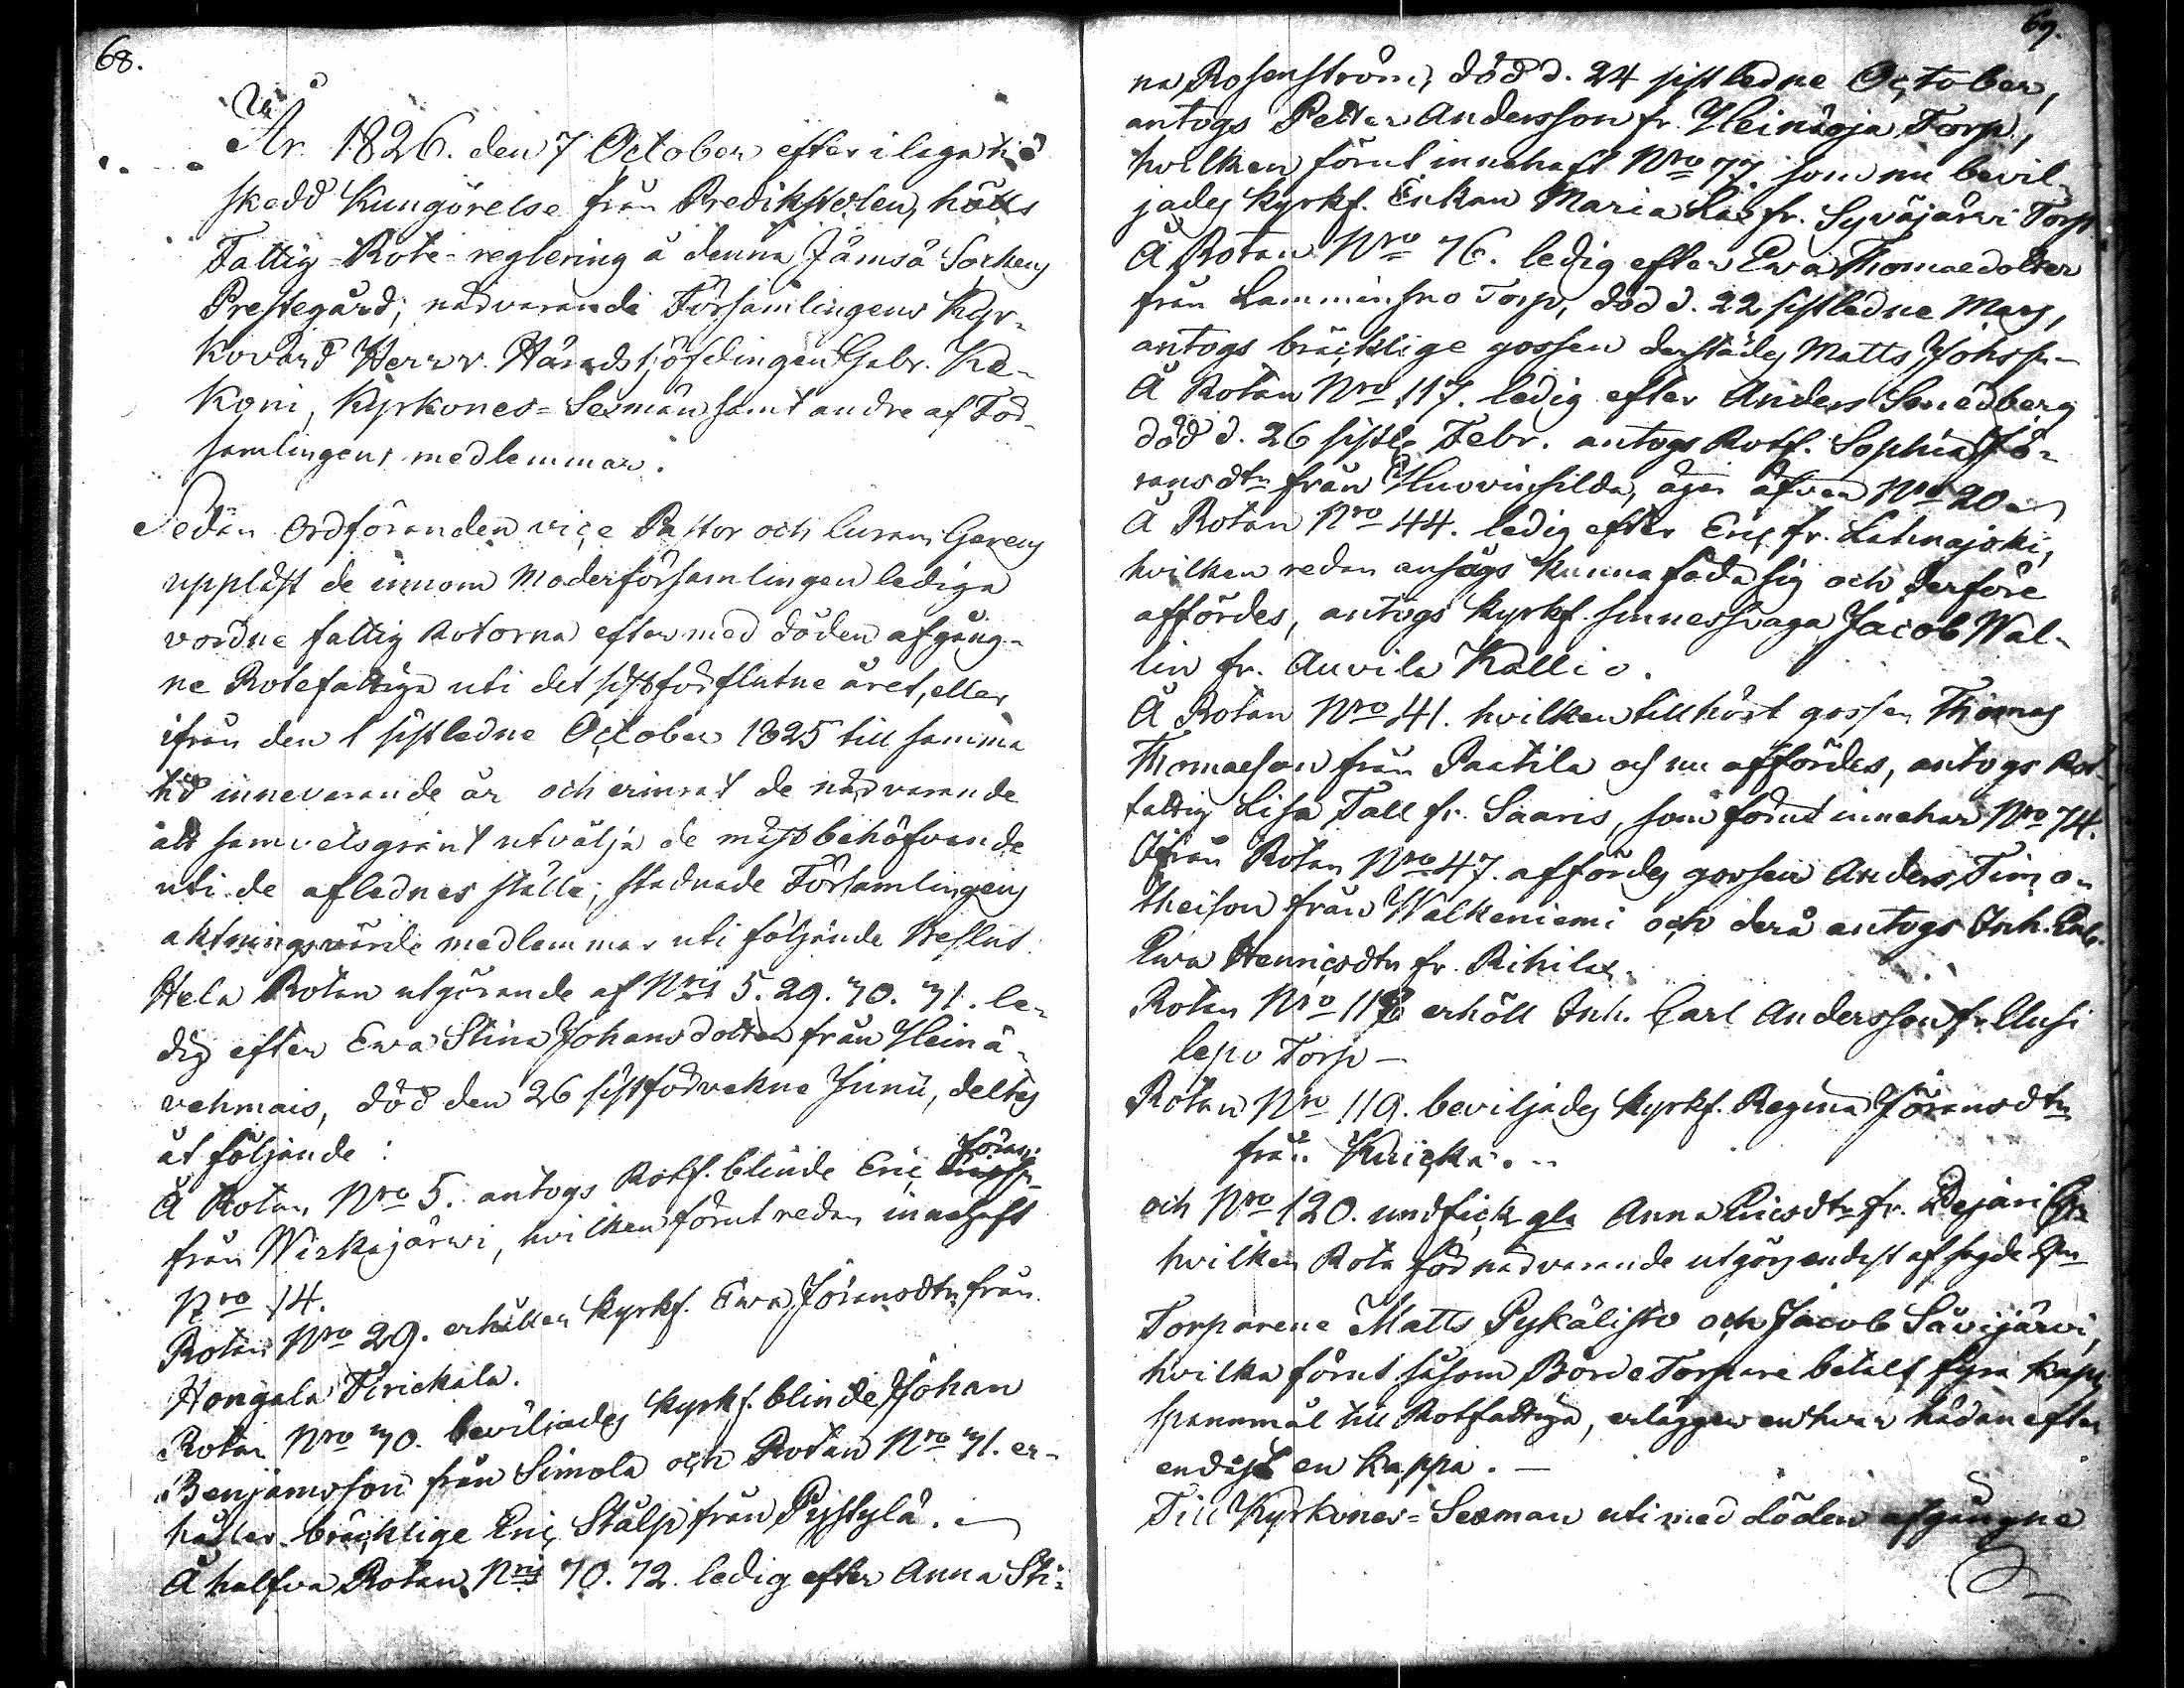 68.
År 1826. den 7 October efter i laga tid
skedd Kungörelse från Predikstolen, hölls
Fattig-Rote-reglering å denna Jämsä Sockens
Prestegård; närvarande Församlingens Kyr-
kovärd Herr v. Häradshöfdingen Gabr. Ke-
koni, Kyrkones-Sexmän samt andre af För-
samlingens medlemmar.
Sedan Ordföranden vice Pastor och
uppläst de innom Moderförsamlingen lediga
vordne fattig Rotorna efter med döden afgång-
ne Rotefattiga uti det sistförflutne året, eller
ifrån den 1 sistledne October 1825 till samma
tid innevarande år och erinrat de närvarande
att samvetsgrant utvälja de mest behöfvande
uti de aflednes ställe; stadnade Församlingens
aktningsvärde medlemmar uti följande Beslut:
Hela Rotan utgörande af Nris 5. 29. 70. 71. le-
dig efter Ewa Stina Johansdotter från Heinä-
vehmais, död den 26 sistförvekne Junii, deltes
åt följande:
Å Rotan Nro 5. antogs Rotf. blinde Eric Jörans:
från Wirkajärwi, hvilken förut redan innehaft
Nro 14.
Rotan Nro 29. erhåller Kyrkf. Ewa Jöransdtr från
Hongala Tirickala.
Rotan Nro 70. beviljades Kyrkf. blinde Johan
Benjamsson från Simola och Rotan Nro 71. er-
håller bräcklige Eric Stålp från Pystylä.
Å halfva Rotan Nris 70. 72. ledig efter Anna Sti-
69.
na Rosenström, död d. 24 sistledne October,
antogs Petter Andersson fr. Heinäoja Torp,
hvilken förut innehaft Nro 77. som nu bevil-
jades Kyrkf. Enkan Maria fr. Syväjärwi Torp
Å Rotan Nro 76. ledig efter Ewa Thomaedotter
från Torp, död d. 22 sistledne Mars,
antogs bräcklige gossen derstädes Matts Johss:-
Å Rotan Nro 117. ledig efter Anders Smedberg
död d. 26 sistl. Febr. antogs Rotf. Sophia Jö-
ransdtr från Huvinsilda, äger äfven Nro 20
Å Rotan Nro 44. ledig efter Eric fr. Lahnajoki,
hvilken redan ansågs kunna föda sig och derföre
affördes, antogs Kyrkf. sinnessvaga Jacob Wal-
lin fr. Auvila Kallio.
Å Rotan Nro 41. hvilken tillhört gossen Thomas
Thomaeson från Paatila och nu affördes, antogs Rot-
fattig Lisa Tall fr. Saaris, som förut innehar Nro 74.
Ifrån Rotan Nro 47. affördes gossen Anders Timo-
theison från Walkeniemi och derå antogs Inh. Enk.
Ewa Henricsdtr fr. Rihilax.
Rotan Nro 118 erhöll Inh. Carl Andersson fr. Uusi
lepo Torp -
Rotan Nro 119. beviljades Kyrkf. Regina Jöransdtr
från
och Nro 120. undfick gla Anna Ericsdtr fr.
hvilken Rota för närvarande utgöres endast af
Torparene Matts Pykälistö och Jacob Savijärvi,
hvilka förut såsom Torpare betalt fyra Kapp.
spannmål till Rotfattiga, erlägger en hvar hädanefter
endast en Kappa. -
Till Kyrkones-Sexman uti med döden afgångne